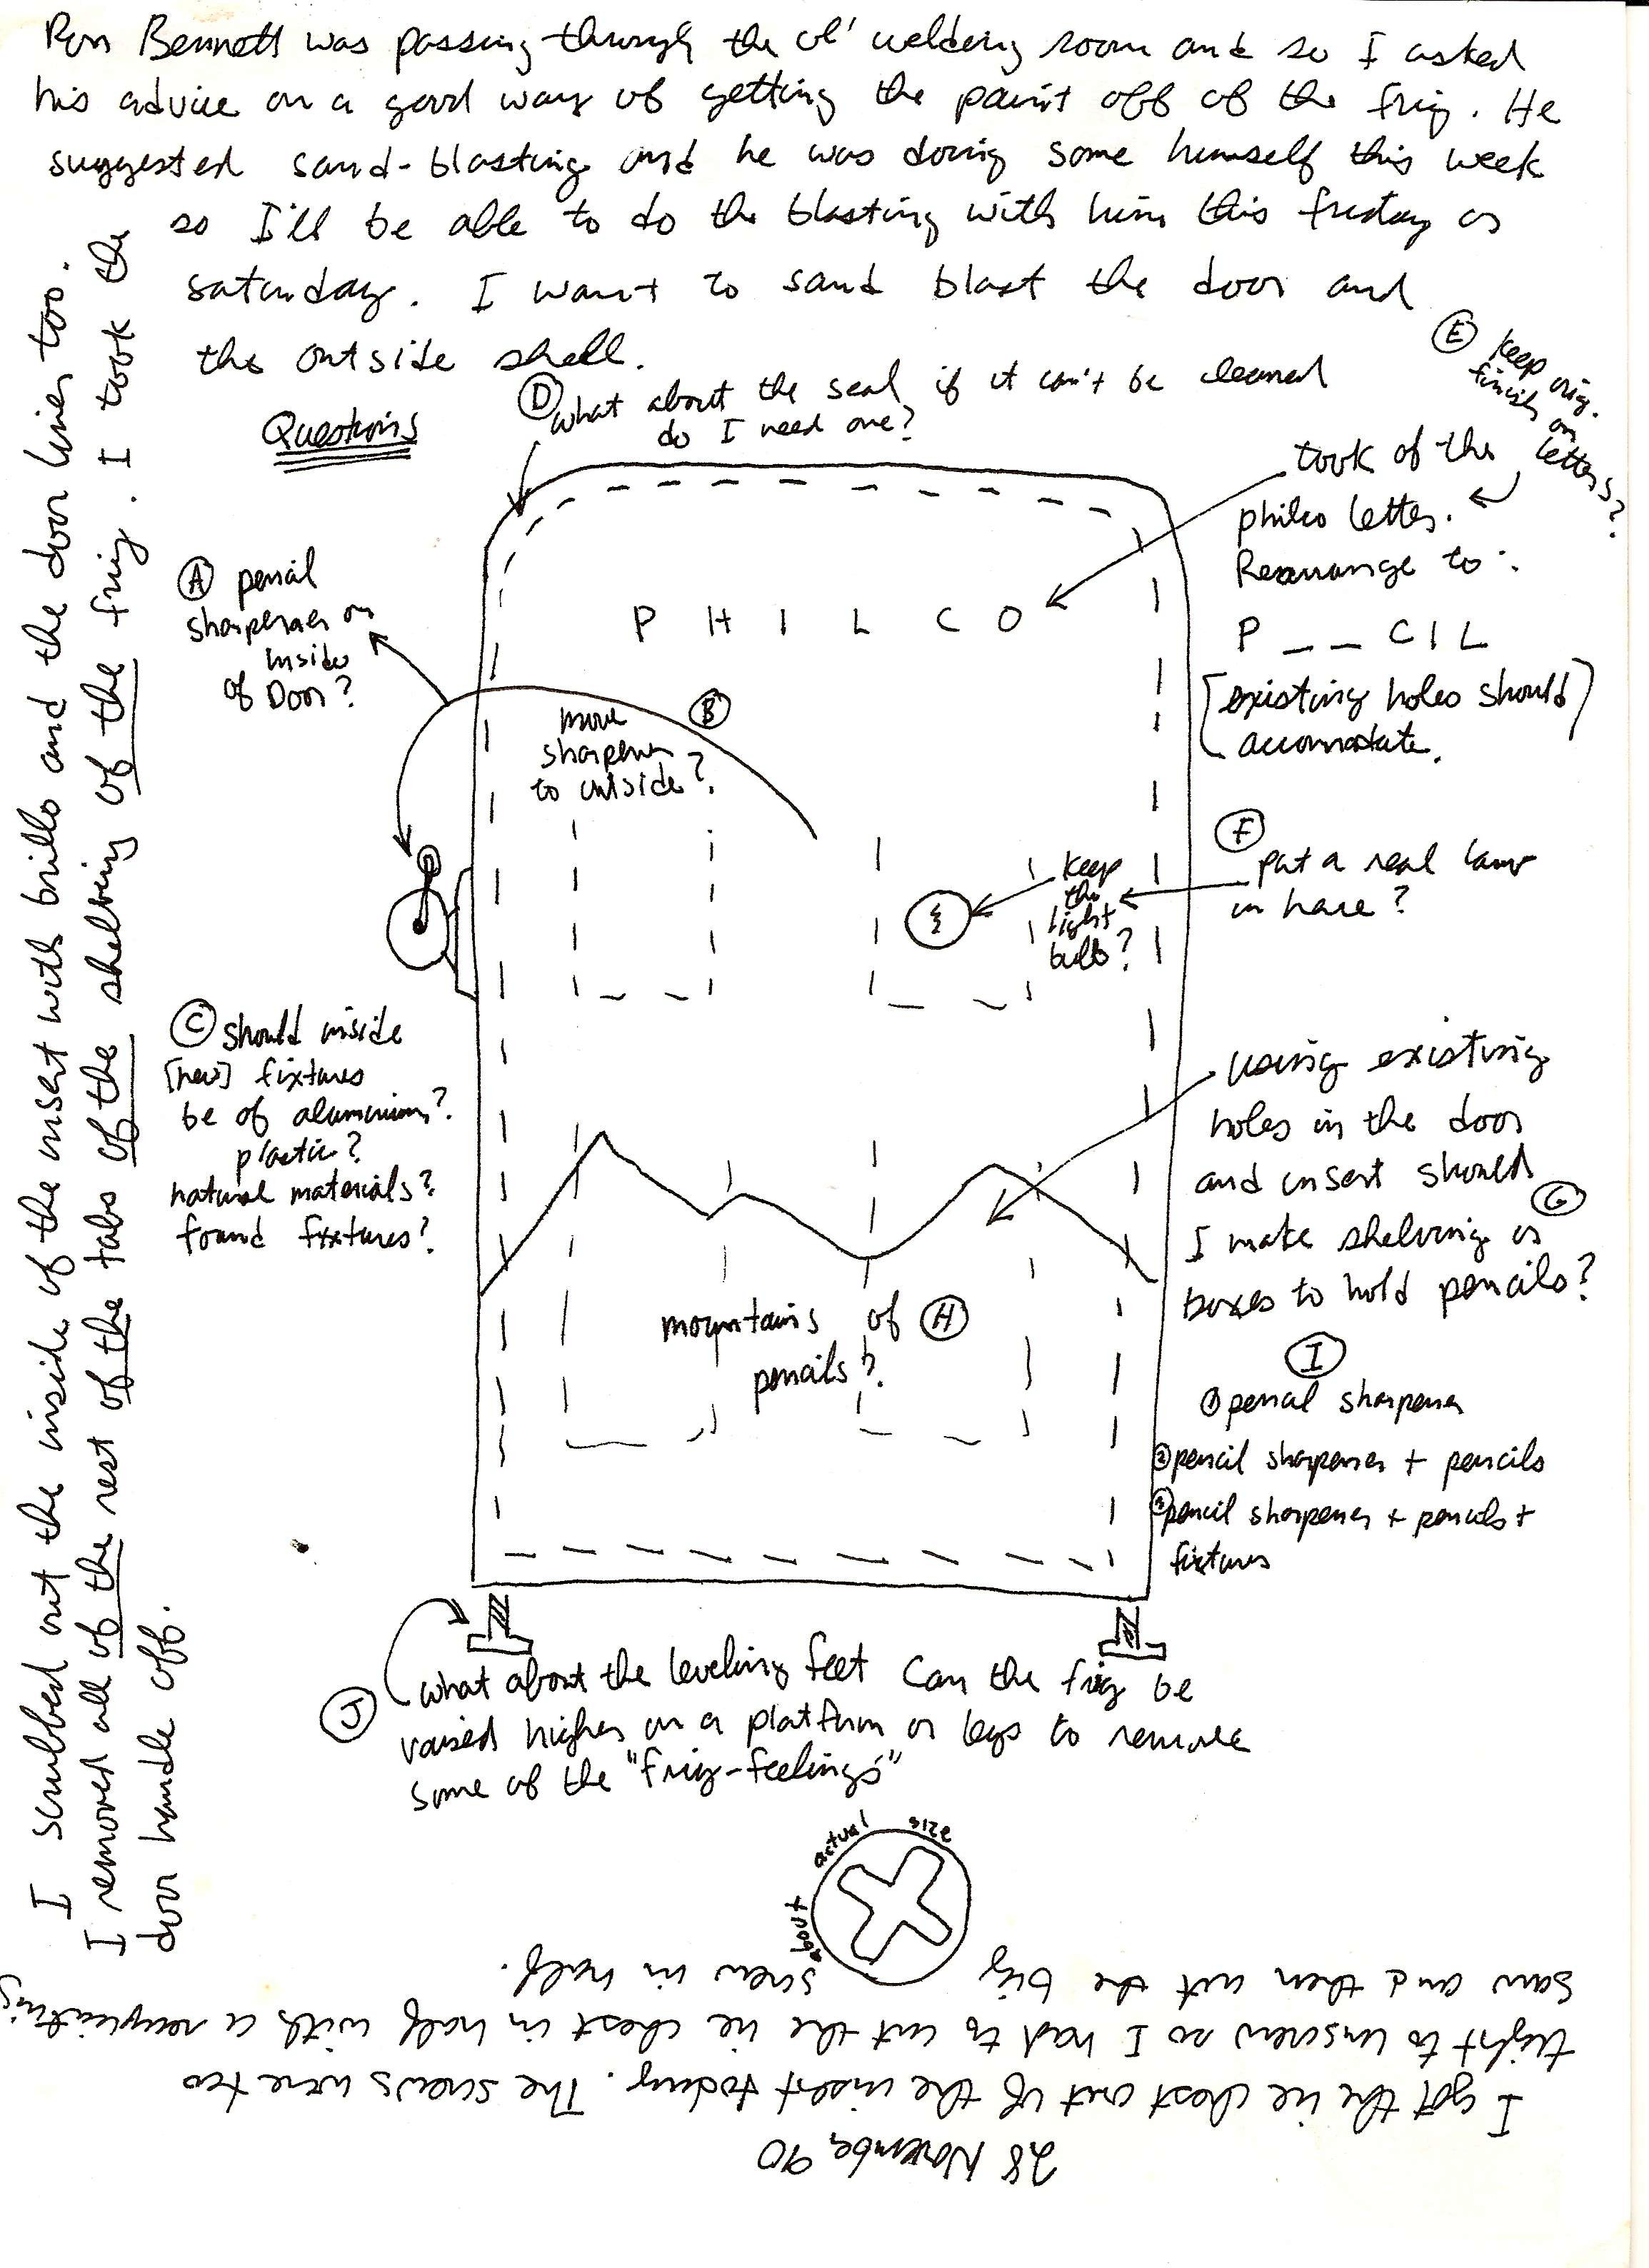 Ron Bennett was passing through the ol' welding room and so I asked
his advice on a good way of getting the paint off of the frig. He
suggested sand-blasting and he was doing some himself this week
so I'll be able to do the blasting with him this friday or
saturday. I want to sand blast the door and
the outside shell.
Questions
D what about the seal if it can't be cleaned
do I need one?
E keep orig.
finish on
letters?
took of the
philco letter.
Rearrange to:
P _ _ C I L
[existing holes should
accomodate.]
P H I L C O
A pencil
sharpener on
inside
of Door?
B move
sharpener
to outside?
keep
the
light
bulb?
F put a real lamp
in here?
C should inside
[new] fixtures
be of aluminium?
plastic?
natural materials?
found fixtures?
using existing
holes in the door
and insert should G
I make shelving or
boxes to hold pencils?
mountains of H
pencils?
I
1 pencil sharpener
2 pencil sharpener + pencils
3 pencil sharpener + pencils +
fixtures
J what about the leveling feet Can the frig be
raised higher on a platform or legs to remove
some of the "frig-feelings"
I scrubbed out the inside of the insert with brillo and the door liner too.
I removed all of the rest of the tabs of the shelving of the frig. I took the
door handle off.
28 November 90
I got the ice chest out of the insert today. The screws were too
tight to unscrew so I had to cut the ice chest in half with a reciprocating
saw and then cut the big screw in half.
about actual size